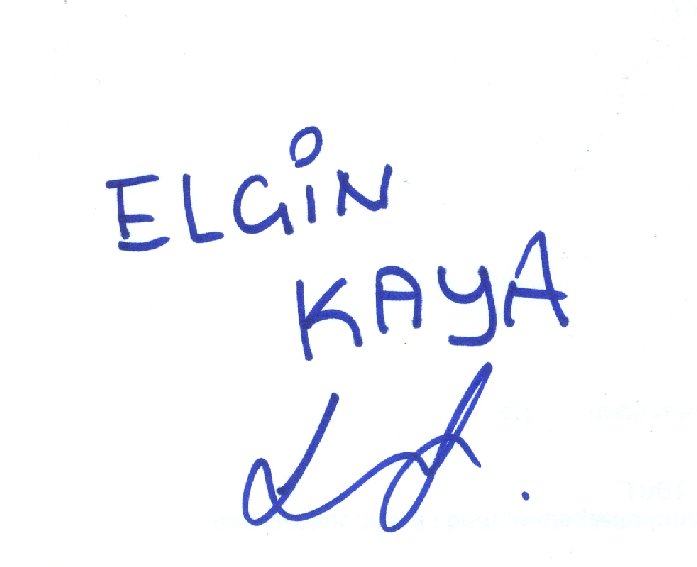 ELGİN
KAYA